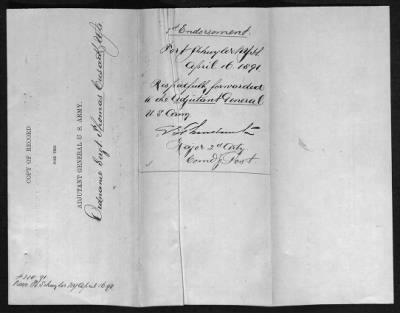 COPY OF RECORD
FOR THE
ADJUTANT GENERAL U. S. ARMY.
Ordnance Sergt Thomas
1st Endorsement.
Fort Schuyler N.Y.H.
April 16. 1891.
Respectfully forwarded
to the Adjutant General
U.S. Army
Major 2d Arty
Comdg Post
Fort Schuyler NY April 16 91